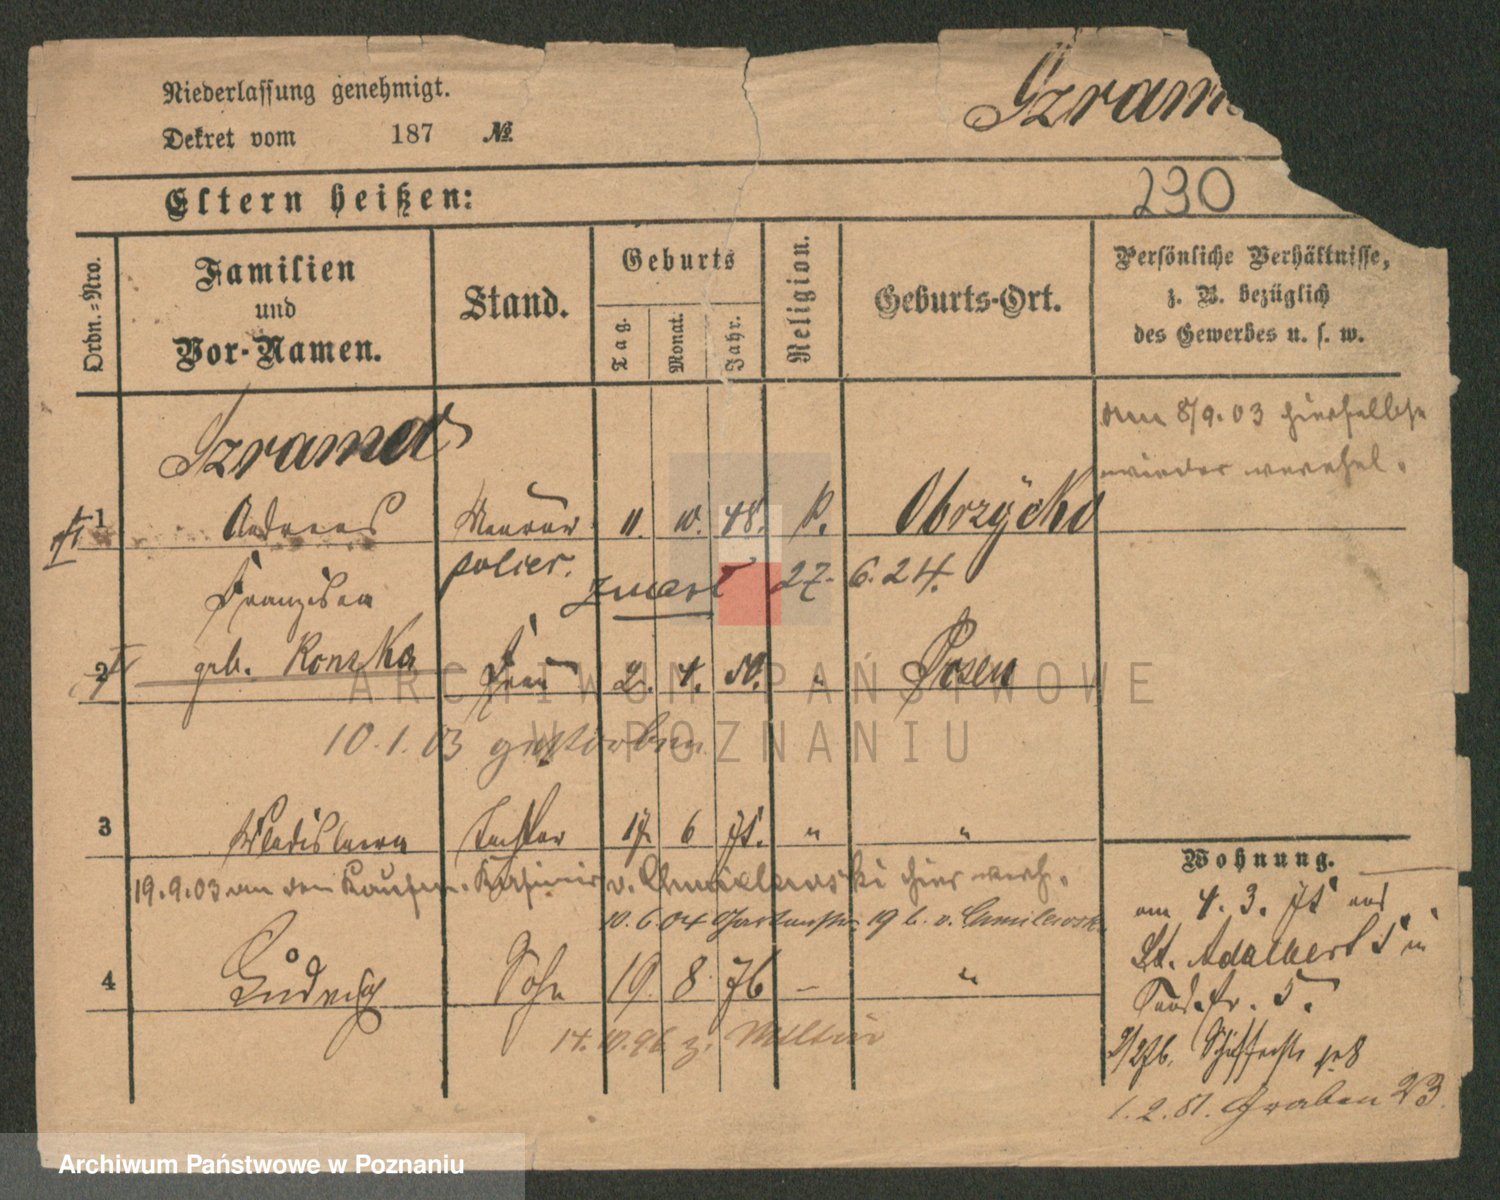 Niederlassung genehmigt.
Dekret vom 187 №
Szram
230
Eltern heißen:
Ordn.=Nro.
Familien und Vor-Namen.
Stand.
Geburts
Tag.
Monat.
Jahr.
Religion.
Geburts-Ort.
Persönliche Verhältnisse,
z. B. bezüglich
des Gewerbes u. s. w.
am 8/9.03 hierselbst
wieder verehel.
Szrama
1 Andreas Maurer 11. 10. 48. k. Obrzycko
polier.
zmarł 27. 6. 24.
Franziska
2 geb. Konska Frau 2. 4. 50. " Posen
10.1.03 gestorben
3 Wladislawa Tochter 17. 6 75. " "
19.9.03 an den Kaufm. Kasimir v. Chmielewski hier verh.
10.6.04 Gartenstr. 19 b. v.
4 Ludwig Sohn 19. 8 76 – "
14.10.96 z. Militär
Wohnung.
am 4. 3. 75 aus
St. Adalbert 5 in
5.
8
1.2.81. Graben 23
ARCHIWUM PAŃSTWOWE
W POZNANIU
Archiwum Państwowe w Poznaniu